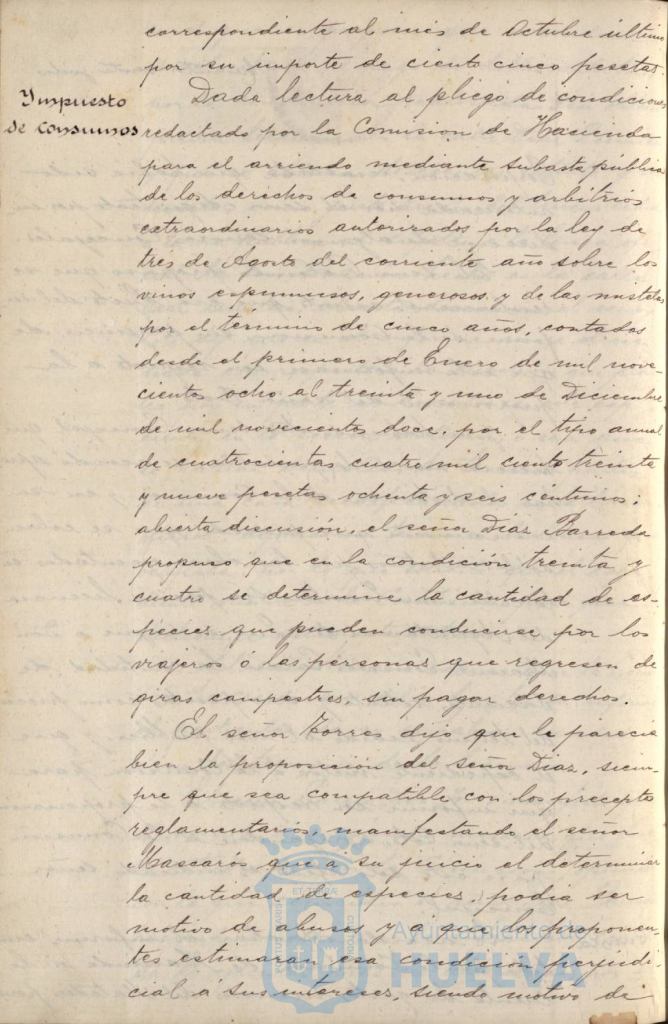 correspondiente al més de Octubre último
por su importe de ciento cinco pesetas.
Ympuesto
de consumos
Dada lectura al pliego de condiciones
redactado por la Comision de Hacienda
para el arriendo mediante subasta pública
de los derechos de consumos y arbitrios
extraordinarios autorizados por la ley de
tres de Agosto del corriente año sobre los
vinos espumosos, generosos y de las mistelas
por el término de cinco años, contados
desde el primero de Enero de mil nove-
cientos ocho al treinta y uno de Diciembre
de mil novecientos doce, por el tipo anual
de cuatrocientas cuatro mil ciento treinta
y nueve pesetas ochenta y seis céntimos;
abierta discusión, el señor Diaz Barreda
propuso que en la condición treinta y
cuatro se determine la cantidad de es-
pecies que pueden conducirse por los
viajeros ó las personas que regresen de
giras campestres, sin pagar derechos.
El señor Torres dijo que le parecia
bien la proposición del señor Diaz, siem-
pre que sea compatible con los preceptos
reglamentarios, manifestando el señor
Mascarós que á su juicio el determinar
la cantidad de especies, podia ser
motivo de abusos y a que los proponen
tes estimaran esa condición perjudi-
cial á sus intereses, siendo motivo de
Ayuntamiento de
HUELVA